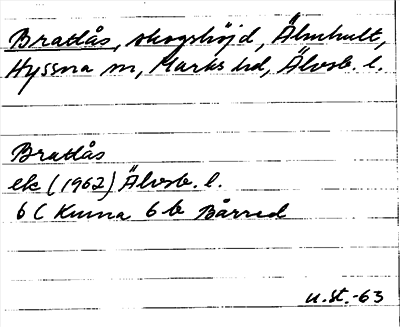 Bratlås, skogshöjd, Älmhult,
Hyssna sn, Marks hd, Älvsb. l.
Bratlås
ek (1962) Älvsb. l.
6 C Kinna 6 b Bårred
u.st.-63